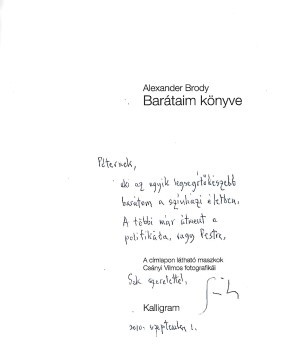 Alexander Brody
Barátaim könyve
Péternek,
aki az egyik legsegítőkészebb
barátom a színházi életben.
A többi már átment a
politikába, vagy Pestre,
A címlapon látható maszkok
Csányi Vilmos fotografikái
Sok szeretettel,
Kalligram
2010. szeptember 1.